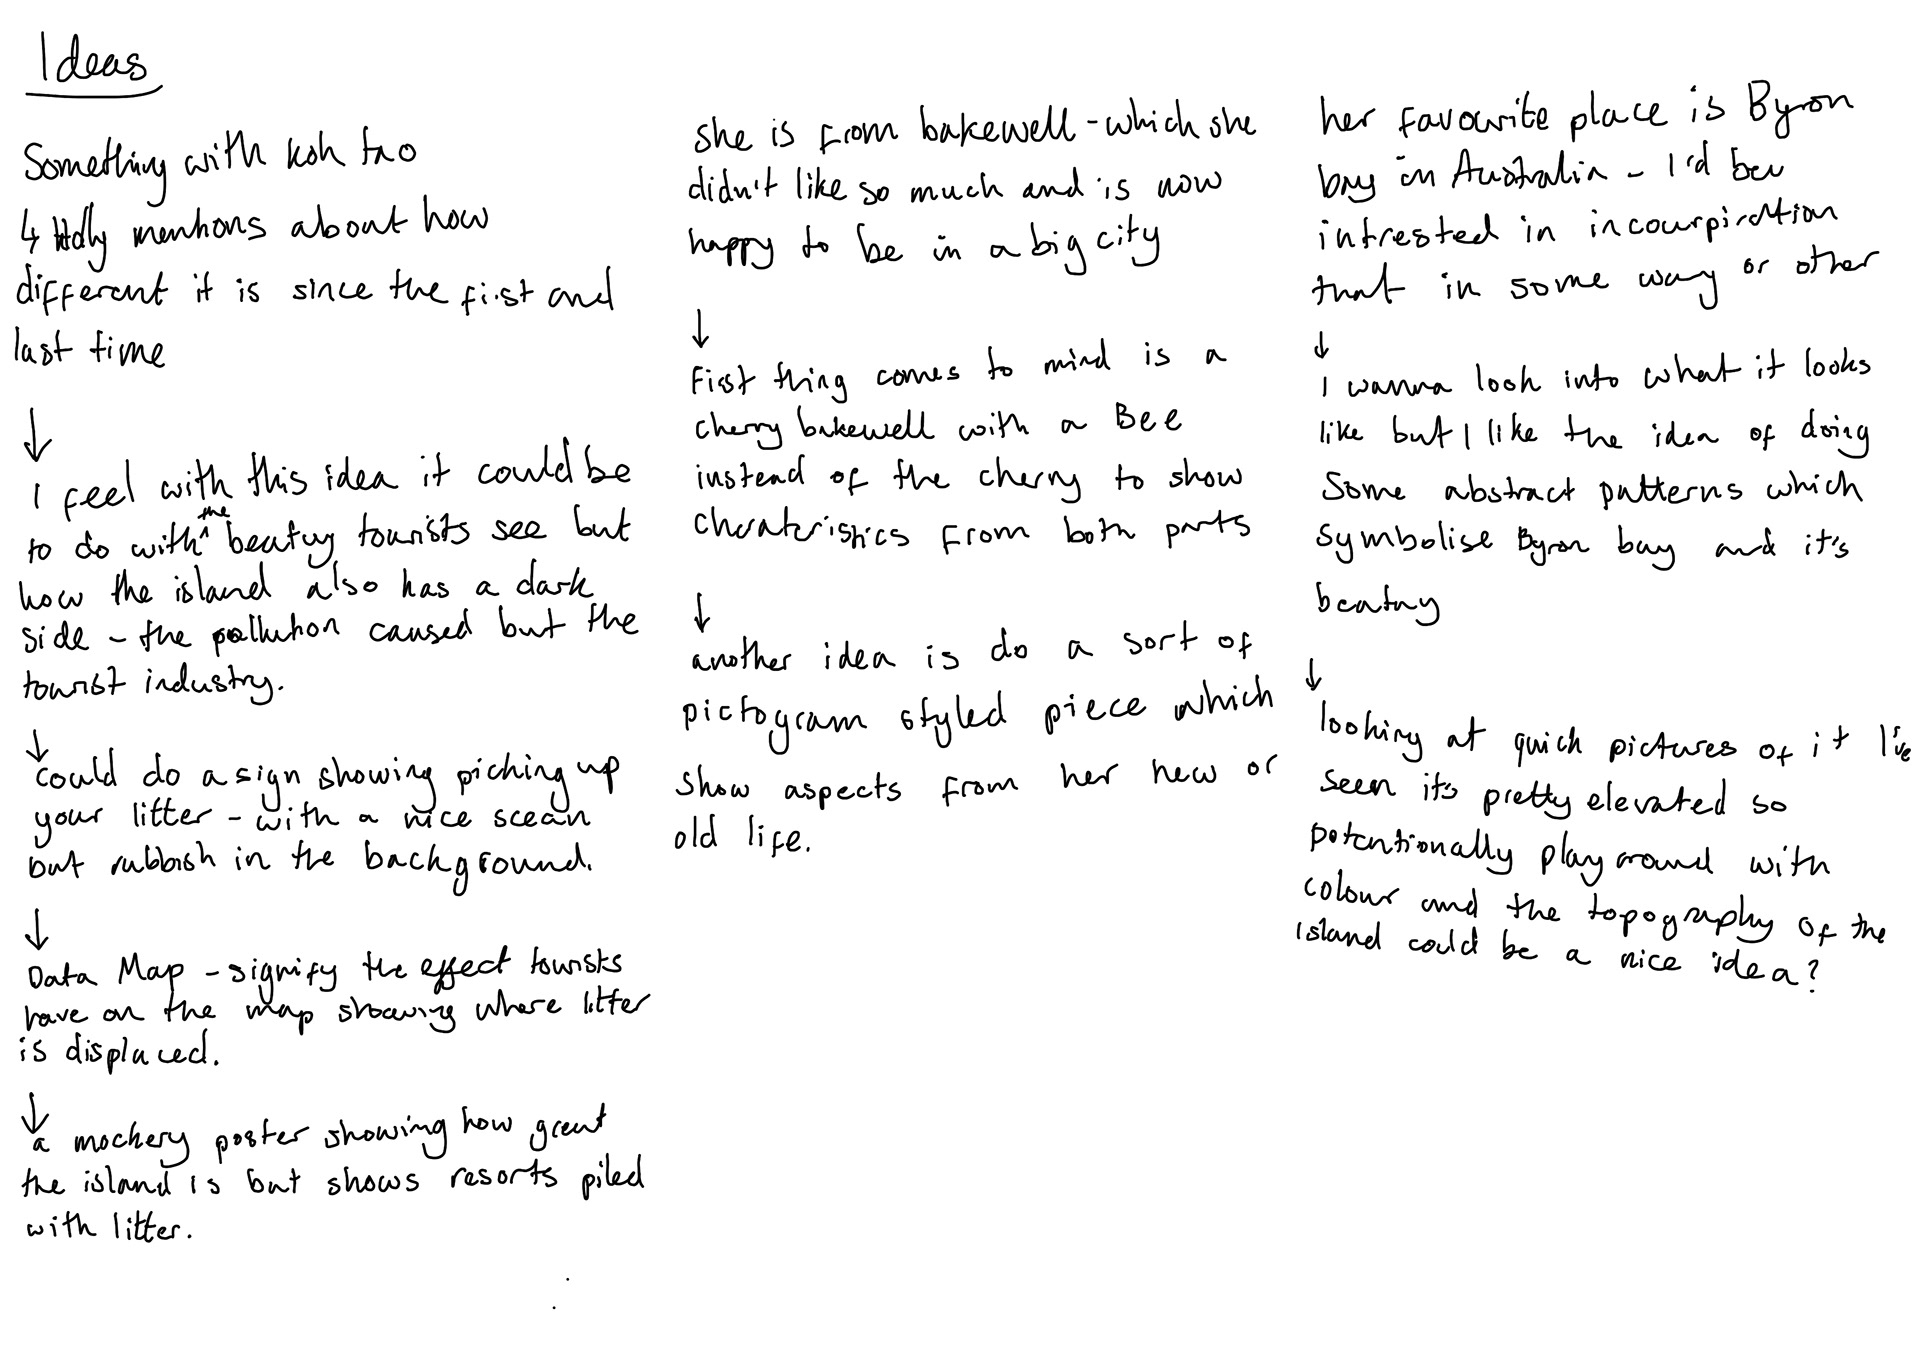 Ideas
Something with koh tao
↳ Holly mentions about how
different it is since the first and
last time
↓
I feel with this idea it could be
to do with the beatuy tourists see but
how the island also has a dark
side - the pollution caused but the
tourist industry.
↓
could do a sign showing picking up
your litter - with a nice scean
but rubbish in the background.
↓
Data Map - signify the effect tourists
have on the map showing where litter
is displaced.
↓
a mockery poster showing how great
the island is but shows resorts piled
with litter.
she is from bakewell - which she
didn't like so much and is now
happy to be in a big city
↓
First thing comes to mind is a
cherry bakewell with a Bee
instead of the cherry to show
cherateristics from both parts
↓
another idea is do a sort of
pictogram styled piece which
show aspects from her new or
old life.
her favourite place is Byron
bay in Australia - I'd be
intrested in incourpiration
that in some way or other
↓
I wanna look into what it looks
like but I like the idea of doing
Some abstract patterns which
symbolise Byron bay and it's
beatuy
↓
looking at quick pictures of it I've
seen its pretty elevated so
potentionally play around with
colour and the topography of the
island could be a nice idea?